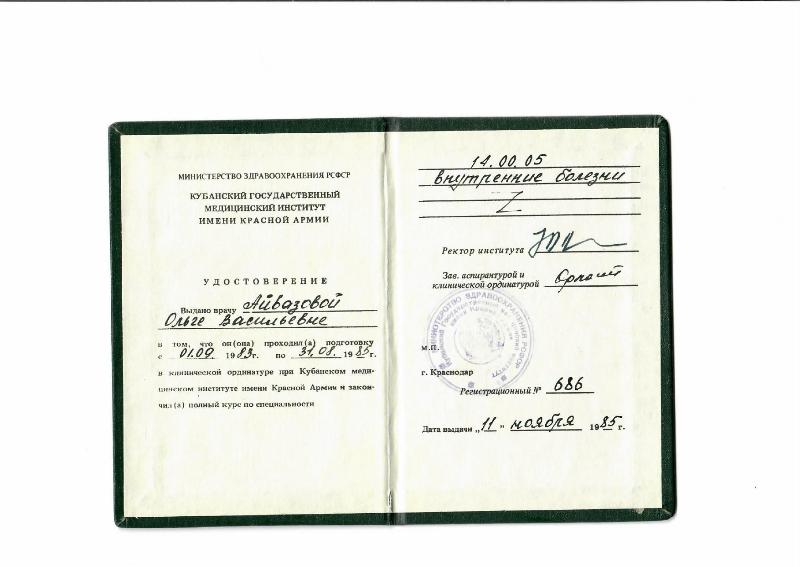 МИНИСТЕРСТВО ЗДРАВООХРАНЕНИЯ РСФСР
КУБАНСКИЙ ГОСУДАРСТВЕННЫЙ
МЕДИЦИНСКИЙ ИНСТИТУТ
ИМЕНИ КРАСНОЙ АРМИИ
УДОСТОВЕРЕНИЕ
Выдано врачу Айвазовой
Ольге Васильевне
в том, что он(она) проходил(а) подготовку
с 01.09 1983г. по 31.08. 1985г.
в клинической ординатуре при Кубанском меди-
цинском институте имени Красной Армии и закон-
чил(а) полный курс по специальности
14.00.05
внутренние болезни
Z
Ректор института
Зав. аспирантурой и
клинической ординатурой
МИНИСТЕРСТВО ЗДРАВООХРАНЕНИЯ РСФСР
М.П.
г. Краснодар
Регистрационный № 686
Дата выдачи „11" ноября 1985 г.